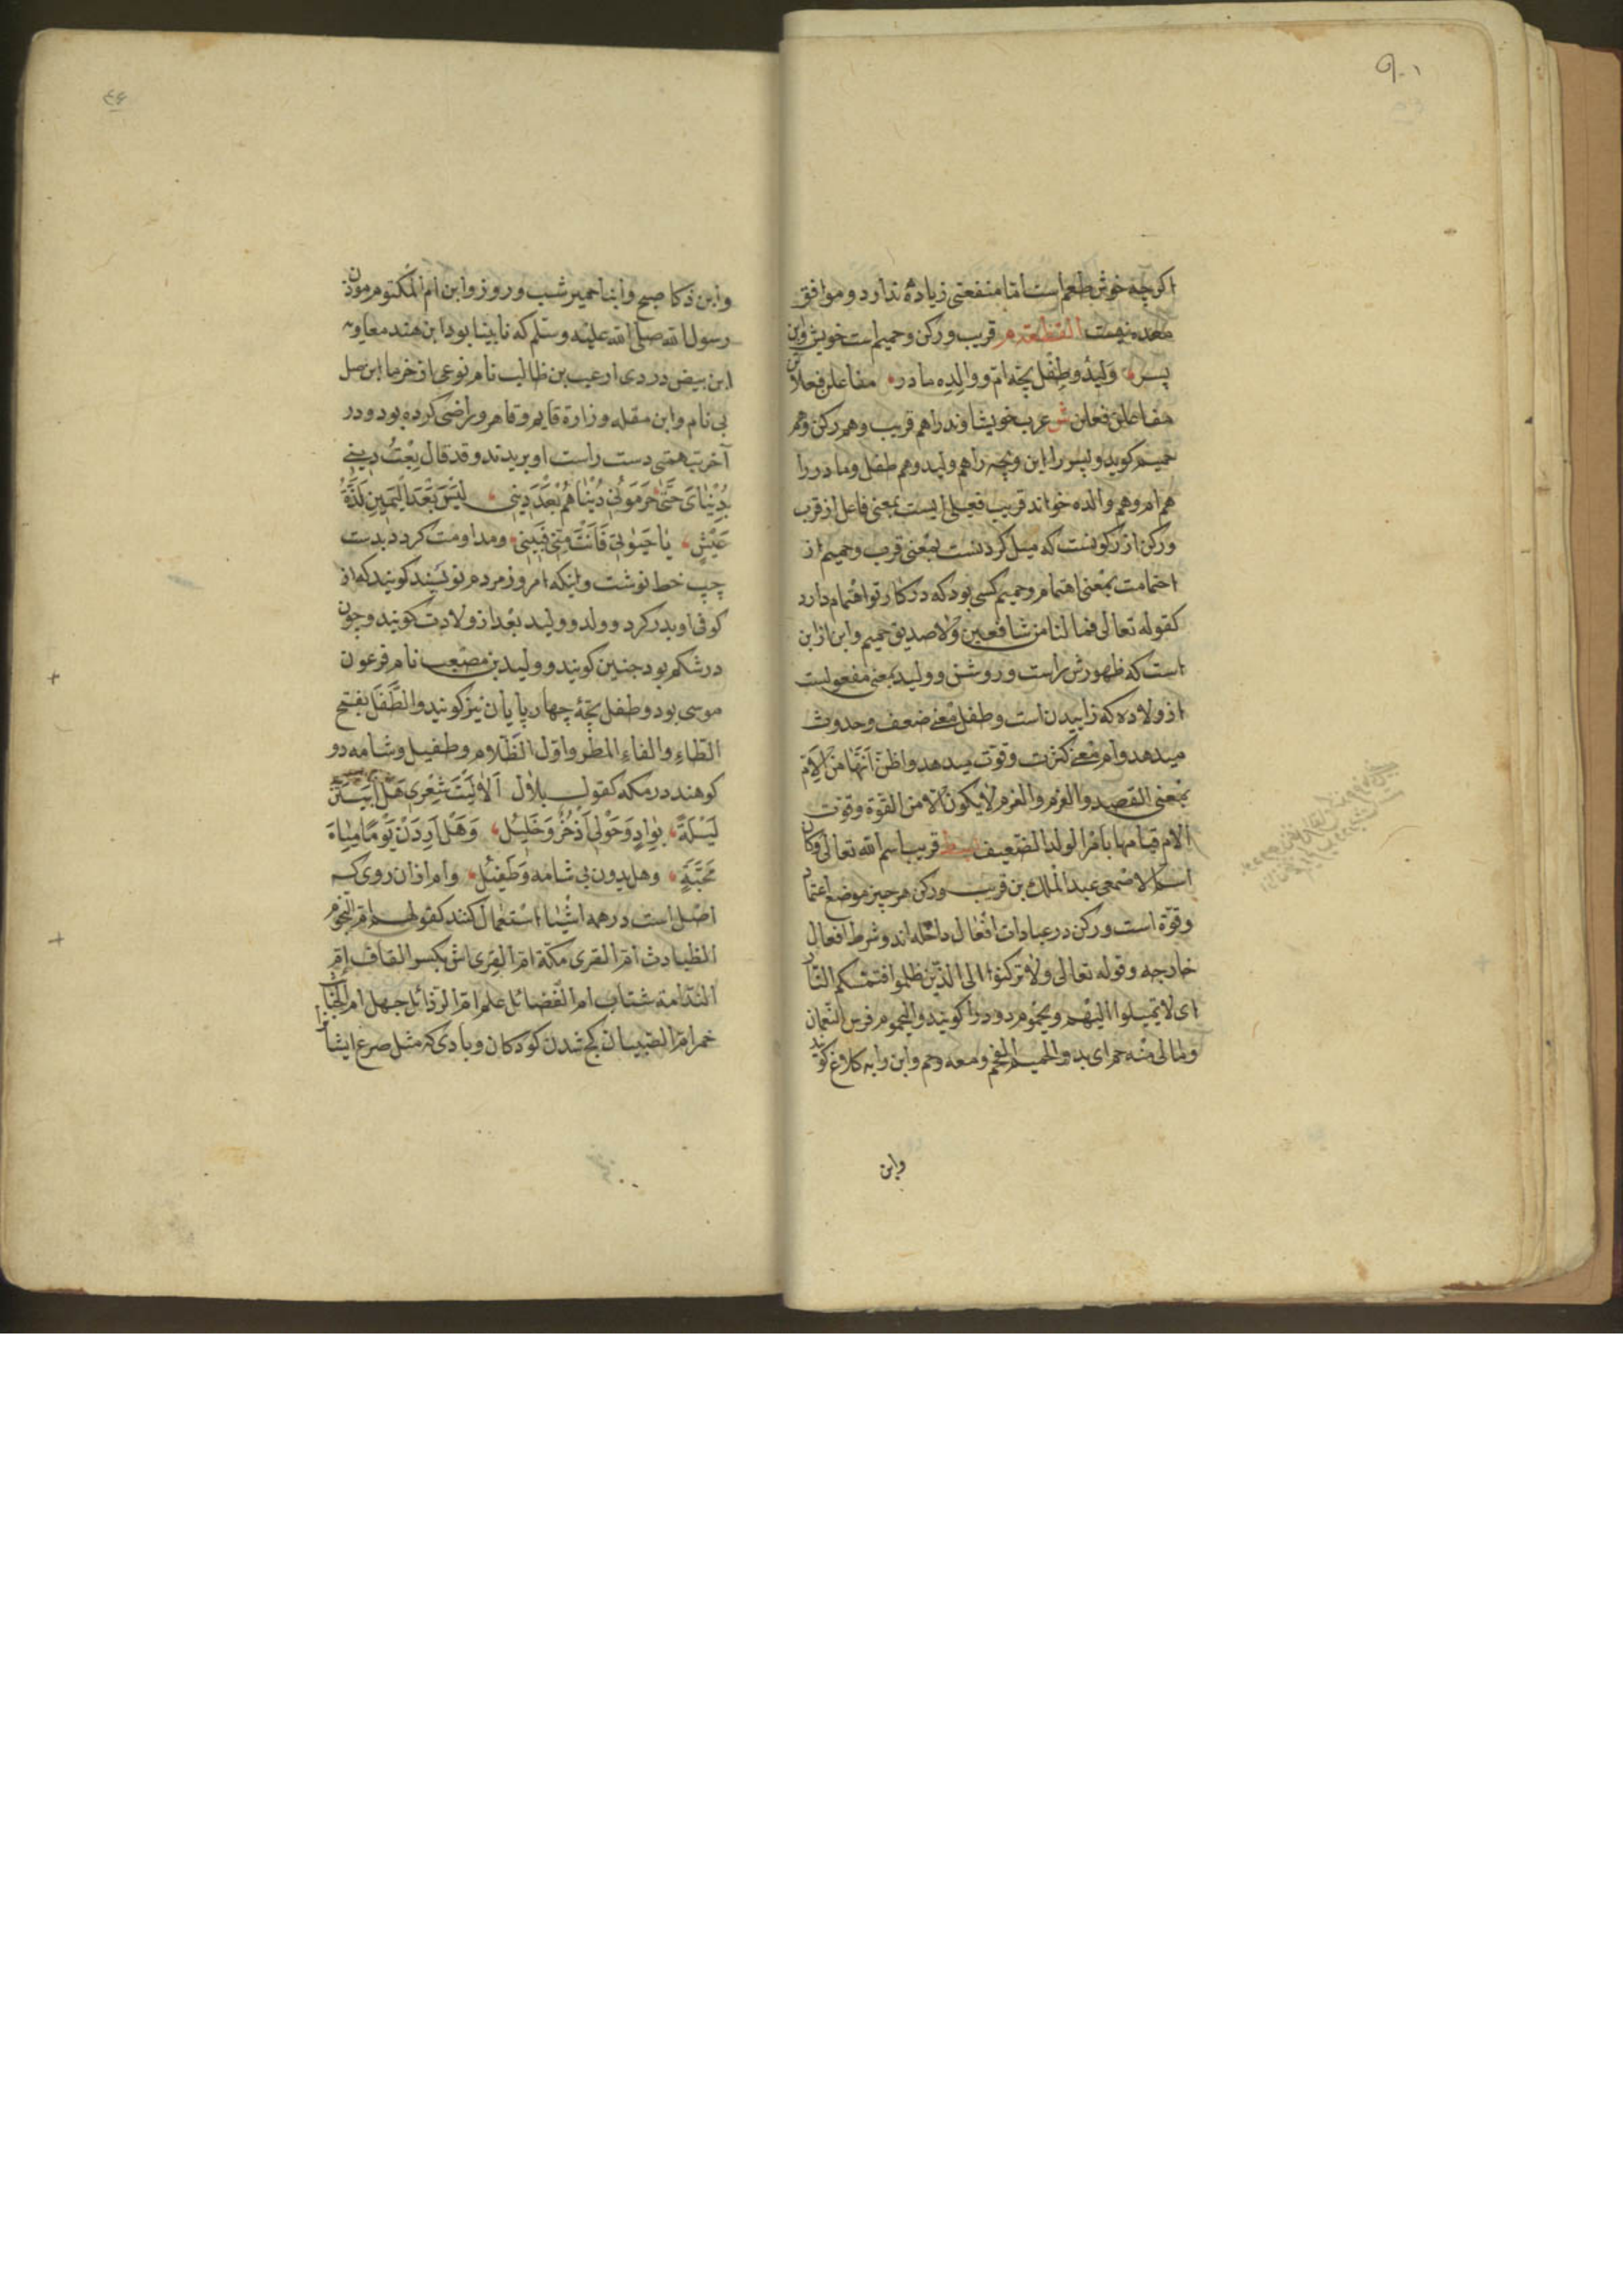 اکرچه خوش طعم است اما منفعتی زیاده ندارد و موافق
معده نیست القطعه م قریب و رکن و حمیم است خویش و ابن
پسر ولید و طفل بچه ام و والده مادر مفاعلن فعلاتن
مفاعلن فعلن ش عرب خویشاوند را هم قریب و هم رکن و هم
حمیم کوید و پسر را ابن و بچه را هم ولید و هم طفل و مادر را
هم ام و هم والده خواند قریب فعیلی ایست بمعنی فاعل از قرب
و رکن از رکونست که میل کردنست بمعنی قرب و حمیم از
احتمامت بمعنی اهتمام و حمیم کسی بود که در کار تو اهتمام دارد
کقوله تعالی فما لنا من شافعین ولا صدیق حمیم و ابن از ابن
است که ظهورش راست و روشن و ولید بمعنی مفعولیست
از ولاده که زاییدن است و طفل معنی ضعف و حدوث
میدهد و ام معنی کثرت و قوت میدهد واظن انها من الام
بمعنی القصد والعزم والعزم لا یکون الا من القوة وقوت
الام قیامها بامر الولد الضعیف قریب اسم الله تعالی وکان
اسم الاصمعی عبد الملک بن قریب و رکن هر چیز موضع اعتماد
وقوة است و رکن در عبادات افعال داخله اند و شرط افعال
خارجه و قوله تعالی ولا ترکنوا الی الذین ظلموا فتمسکم النار
ای لا تمیلوا الیهم و یحموم دود را کویند والیحموم فرس النعمان
ومالی منه حم ای بد والحمیم الفحم ومعه وحم وابن دایه کلاغ کویند
وابن
وابن ذکا صبح وابنا حمیر شب و روز وابن ام المکتوم موذن
رسول الله صلی الله علیه وسلم که نابینا بود ابن هند معاویه
ابن بیض دزدی ابن طالب نام نوعی از خرما ابن صل
بی نام وابن مقله وزارة قایم و قاهر و راضی کرده بود و در
آخر بتهمتی دست راست او بریدند و قد قال بعت دینی
بدنیای حتی حرمونی دنیاهم بعد دینی لیس بعد الیمین لذة
عیش یا حیوتی فانت منی فبینی و مداومت کرد بدست
چپ خط نوشت و اینکه امروز مردم نویسند کویند که از
کوفی او بدر کرد و ولد و ولید بعد از ولادت کویند و چون
در شکم بود جنین کویند و ولید بن مصعب نام فرعون
موسی بود و طفل بچهٔ چهار پایان نیز کویند والطفل بفتح
الطاء والفاء المطر واول الظلام وطفیل وشامه دو
کوهند در مکه کقول بلال الا لیت شعری هل ابیتن
لیلة بواد وحولی اذخر وجلیل وهل اردن یوما میاه
مجنة وهل یدون لی شامة وطفیل وام از ان روی که
اصل است در همه اشیا استعمال کنند کقولهم ام النجوم
ام القری مکة ام القری اتش بکسر القاف ام
الندامة شتاب ام الفضائل علم ام الرذائل جهل ام الخبائث
خمر ام الصبیان کج شدن کودکان و بادی که مثل صرع ایشانرا